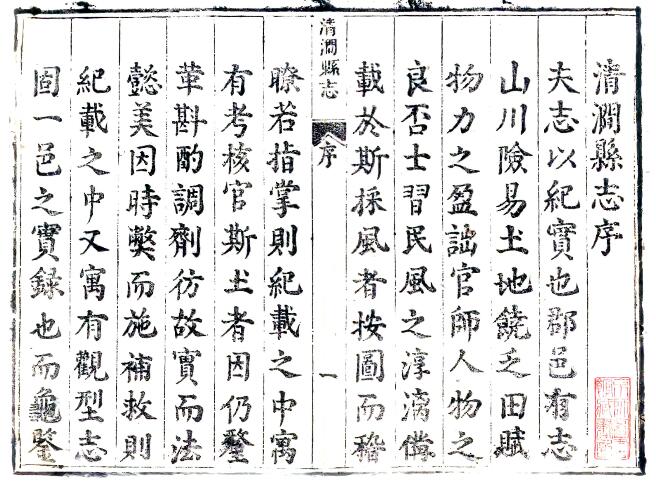 清澗縣志序
夫志以紀實也郡邑有志
山川險易土地饒乏田賦
物力之盈詘官師人物之
良否士習民風之淳漓俻
載於斯採風者按圖而稽
清澗縣志
序
一
瞭若指掌則紀載之中寓
有考核官斯土者因仍釐
革斟酌調劑彷故實而法
懿美因時獘而施補救則
紀載之中又寓有觀型志
固一邑之實錄也而龜鑒